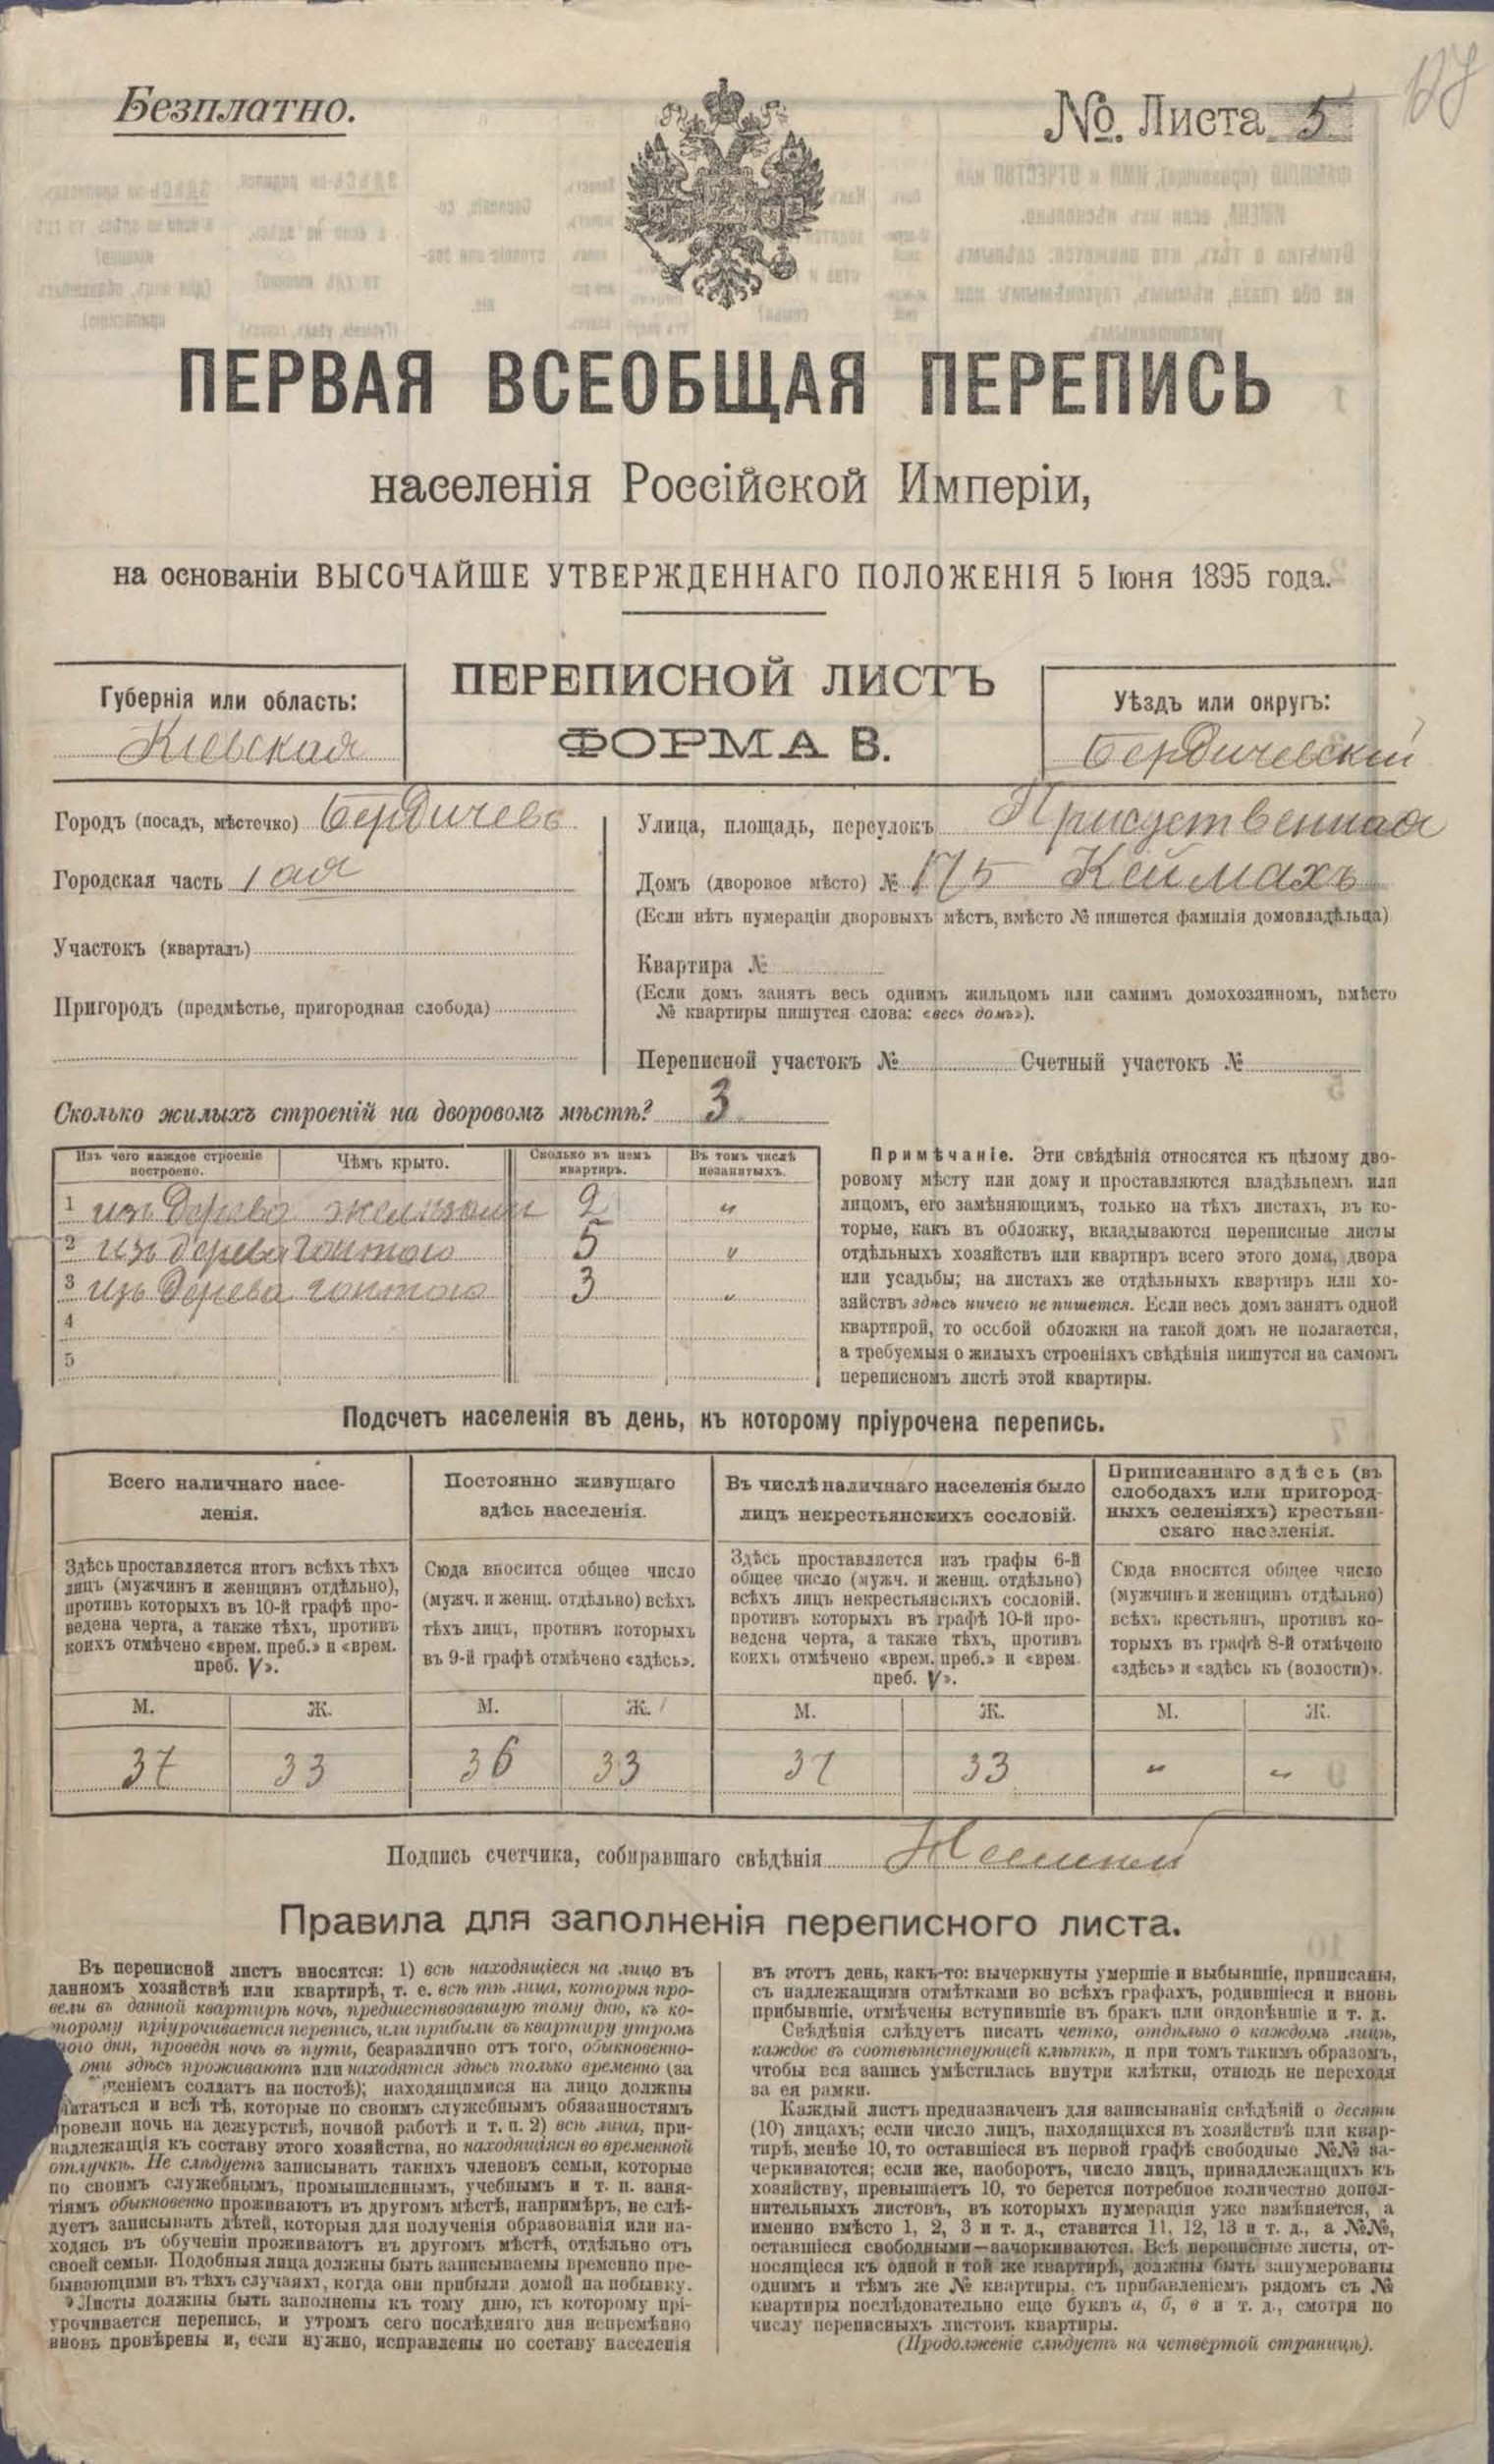 Безплатно.
№. Листа 5
ПЕРВАЯ ВСЕОБЩАЯ ПЕРЕПИСЬ
населенія Россійской Имперіи,
на основаніи ВЫСОЧАЙШЕ УТВЕРЖДЕННАГО ПОЛОЖЕНІЯ 5 Іюня 1895 года.
Губернія или область:
Кіевская
ПЕРЕПИСНОЙ ЛИСТЪ
ФОРМА В.
Уѣздъ или округъ:
Бердичевскій
Городъ (посадъ, мѣстечко) Бердичевъ
Городская часть 1 ая
Участокъ (кварталъ)
Пригородъ (предмѣстье, пригородная слобода)
Улица, площадь, переулокъ Присуственная
Домъ (дворовое мѣсто) № 175 Кеймахъ
(Если нѣтъ нумераціи дворовыхъ мѣстъ, вмѣсто № пишется фамилія домовладѣльца)
Квартира №
(Если домъ занятъ весь однимъ жильцомъ или самимъ домохозяиномъ, вмѣсто
№ квартиры пишутся слова: «весь домъ»).
Переписной участокъ № Счетный участокъ №
Сколько жилыхъ строеній на дворовомъ мѣстѣ? 3
Изъ чего каждое строеніе построено. Чѣмъ крыто. Сколько въ немъ квартиръ. Въ томъ числѣ незанятыхъ.
1 изъ дерева 2 "
2 изъ дерева гонтою 5 "
3 изъ дерева гонтою 3 "
4
5
Примѣчаніе. Эти свѣдѣнія относятся къ цѣлому дво-
ровому мѣсту или дому и проставляются владѣльцемъ или
лицомъ, его замѣняющимъ, только на тѣхъ листахъ, въ ко-
торые, какъ въ обложку, вкладываются переписные листы
отдѣльныхъ хозяйствъ или квартиръ всего этого дома, двора
или усадьбы; на листахъ же отдѣльныхъ квартиръ или хо-
зяйствъ здѣсь ничего не пишется. Если весь домъ занятъ одной
квартирой, то особой обложки на такой домъ не полагается,
а требуемыя о жилыхъ строеніяхъ свѣдѣнія пишутся на самомъ
переписномъ листѣ этой квартиры.
Подсчетъ населенія въ день, къ которому пріурочена перепись.
Всего наличнаго насе-
ленія.
Здѣсь проставляется итогъ всѣхъ тѣхъ
лицъ (мужчинъ и женщинъ отдѣльно),
противъ которыхъ въ 10-й графѣ про-
ведена черта, а также тѣхъ, противъ
коихъ отмѣчено «врем. преб.» и «врем.
преб. V».
Постоянно живущаго
здѣсь населенія.
Сюда вносится общее число
(мужч. и женщ. отдѣльно) всѣхъ
тѣхъ лицъ, противъ которыхъ
въ 9-й графѣ отмѣчено «здѣсь».
Въ числѣ наличнаго населенія было
лицъ некрестьянскихъ сословій.
Здѣсь проставляется изъ графы 6-й
общее число (мужч. и женщ. отдѣльно)
всѣхъ лицъ некрестьянскихъ сословій,
противъ которыхъ въ графѣ 10-й про-
ведена черта, а также тѣхъ, противъ
коихъ отмѣчено «врем. преб.» и «врем.
преб. V».
Приписаннаго здѣсь (въ
слободахъ или пригород-
ныхъ селеніяхъ) крестьян-
скаго населенія.
Сюда вносится общее число
(мужчинъ и женщинъ отдѣльно)
всѣхъ крестьянъ, противъ ко-
торыхъ въ графѣ 8-й отмѣчено
«здѣсь» и «здѣсь къ (волости)».
М. Ж. М. Ж. М. Ж. М. Ж.
37 33 36 33 37 33 " "
Подпись счетчика, собиравшаго свѣдѣнія
Правила для заполненія переписного листа.
Въ переписной листъ вносятся: 1) всѣ находящіеся на лицо въ
данномъ хозяйствѣ или квартирѣ, т. е. всѣ тѣ лица, которыя про-
вели въ данной квартирѣ ночь, предшествовавшую тому дню, къ ко-
торому пріурочивается перепись, или прибыли въ квартиру утромъ
дня, проведя ночь въ пути, безразлично отъ того, обыкновенно-
они здѣсь проживаютъ или находятся здѣсь только временно (за
солдатъ на постоѣ); находящимися на лицо должны
считаться и всѣ тѣ, которые по своимъ служебнымъ обязанностямъ
провели ночь на дежурствѣ, ночной работѣ и т. п. 2) всѣ лица, при-
надлежащія къ составу этого хозяйства, но находящіяся во временной
отлучкѣ. Не слѣдуетъ записывать такихъ членовъ семьи, которые
по своимъ служебнымъ, промышленнымъ, учебнымъ и т. п. заня-
тіямъ обыкновенно проживаютъ въ другомъ мѣстѣ, напримѣръ, не слѣ-
дуетъ записывать дѣтей, которыя для полученія образованія или на-
ходясь въ обученіи проживаютъ въ другомъ мѣстѣ, отдѣльно отъ
своей семьи. Подобныя лица должны быть записываемы временно пре-
бывающими въ тѣхъ случаяхъ, когда они прибыли домой на побывку.
Листы должны быть заполнены къ тому дню, къ которому прі-
урочивается перепись, и утромъ сего послѣдняго дня непремѣнно
вновь провѣрены и, если нужно, исправлены по составу населенія
въ этотъ день, какъ-то: вычеркнуты умершіе и выбывшіе, приписаны,
съ надлежащими отмѣтками во всѣхъ графахъ, родившіеся и вновь
прибывшіе, отмѣчены вступившіе въ бракъ или овдовѣвшіе и т. д.
Свѣдѣнія слѣдуетъ писать четко, отдѣльно о каждомъ лицѣ,
каждое въ соотвѣтствующей клѣткѣ, и при томъ такимъ образомъ,
чтобы вся запись умѣстилась внутри клѣтки, отнюдь не переходя
за ея рамки.
Каждый листъ предназначенъ для записыванія свѣдѣній о десяти
(10) лицахъ; если число лицъ, находящихся въ хозяйствѣ или квар-
тирѣ, менѣе 10, то оставшіеся въ первой графѣ свободные №№ за-
черкиваются; если же, наоборотъ, число лицъ, принадлежащихъ къ
хозяйству, превышаетъ 10, то берется потребное количество допол-
нительныхъ листовъ, въ которыхъ нумерація уже измѣняется, а
именно вмѣсто 1, 2, 3 и т. д., ставится 11, 12, 13 и т. д., а №№,
оставшіеся свободными—зачоркиваются. Всѣ переписные листы, от-
носящіеся къ одной и той же квартирѣ, должны быть занумерованы
однимъ и тѣмъ же № квартиры, съ прибавленіемъ рядомъ съ №
квартиры послѣдовательно еще буквъ а, б, в и т. д., смотря по
числу переписныхъ листовъ квартиры.
(Продолженіе слѣдуетъ на четвертой страницѣ).